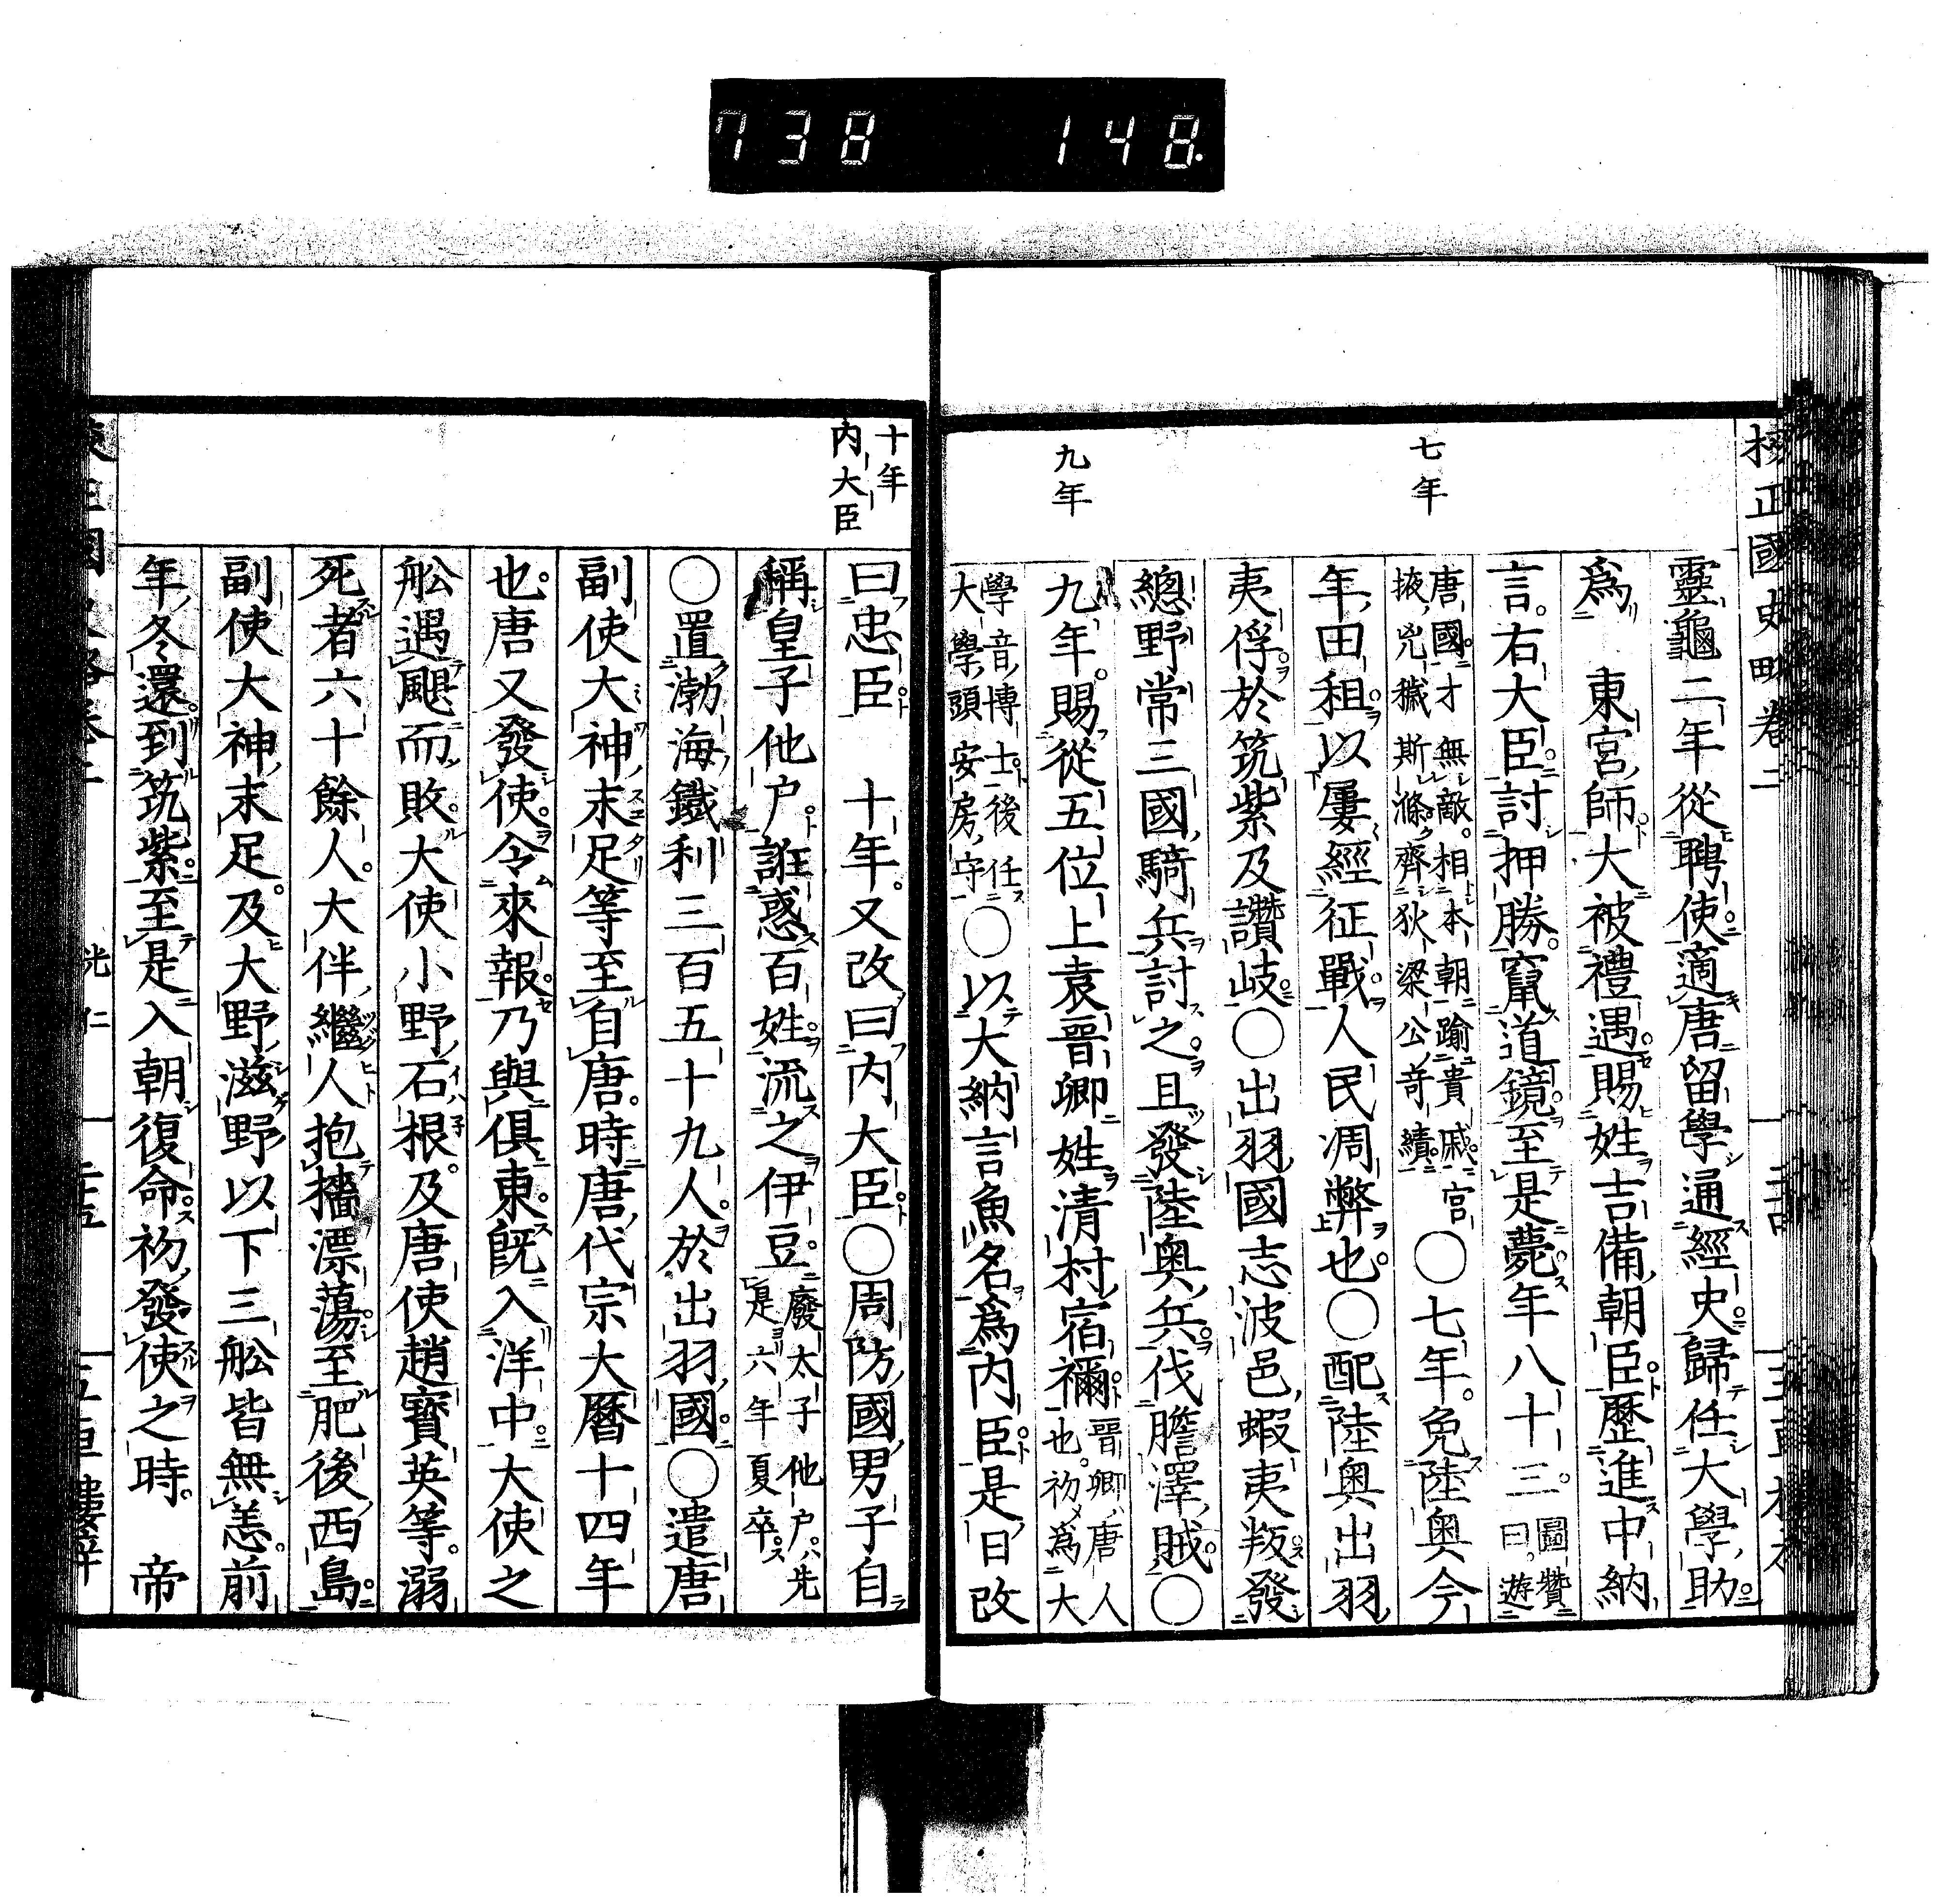 738 148.
校正國史畧卷二
七年
九年
靈龜二年從聘使適唐留學通經史歸任大學助
爲 東宮師大被禮遇賜姓吉備朝臣歷進中納
言右大臣討押勝竄道鏡至是薨年八十三圖贊曰遊
唐國才無敵相本朝踰貴戚宮掖兇穢斯滌齊狄梁公奇績〇七年免陸奥今
年田租以屢經征戰人民凋弊也〇配陸奥出羽
夷俘於筑紫及讚岐〇出羽國志波邑蝦夷叛發
總野常三國騎兵討之且發陸奥兵伐膽澤賊〇
九年賜從五位上袁晉卿姓清村宿禰晉卿唐人也初爲大
學音博士後任大學頭安房守〇以大納言魚名爲内臣是日改
十年
内大臣
曰忠臣 十年又改曰内大臣〇周防國男子自
稱皇子他户誑惑百姓流之伊豆廢太子他户先是六年夏卒
〇置渤海鐵利三百五十九人於出羽國〇遣唐
副使大神末足等至自唐時唐代宗大曆十四年
也唐又發使令來報乃與俱東既入洋中大使之
舩遇颶而敗大使小野石根及唐使趙寶英等溺
死者六十餘人大伴繼人抱檣漂蕩至肥後西島
副使大神末足及大野滋野以下三舩皆無恙前
年冬還到筑紫至是入朝復命初發使之時 帝
光仁